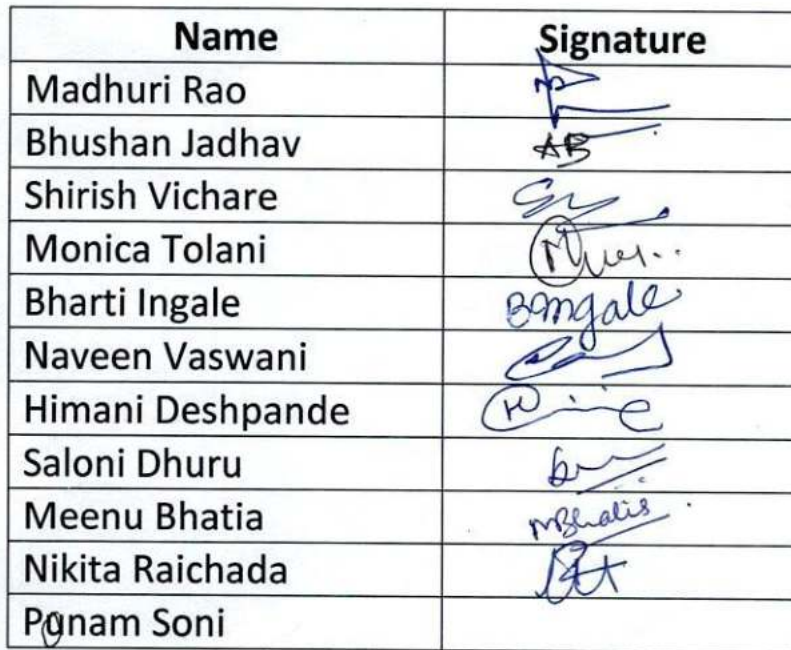 Name Signature
Madhuri Rao
Bhushan Jadhav AB
Shirish Vichare
Monica Tolani
Bharti Ingale BIngale
Naveen Vaswani
Himani Deshpande
Saloni Dhuru
Meenu Bhatia MBhatia
Nikita Raichada
Punam Soni